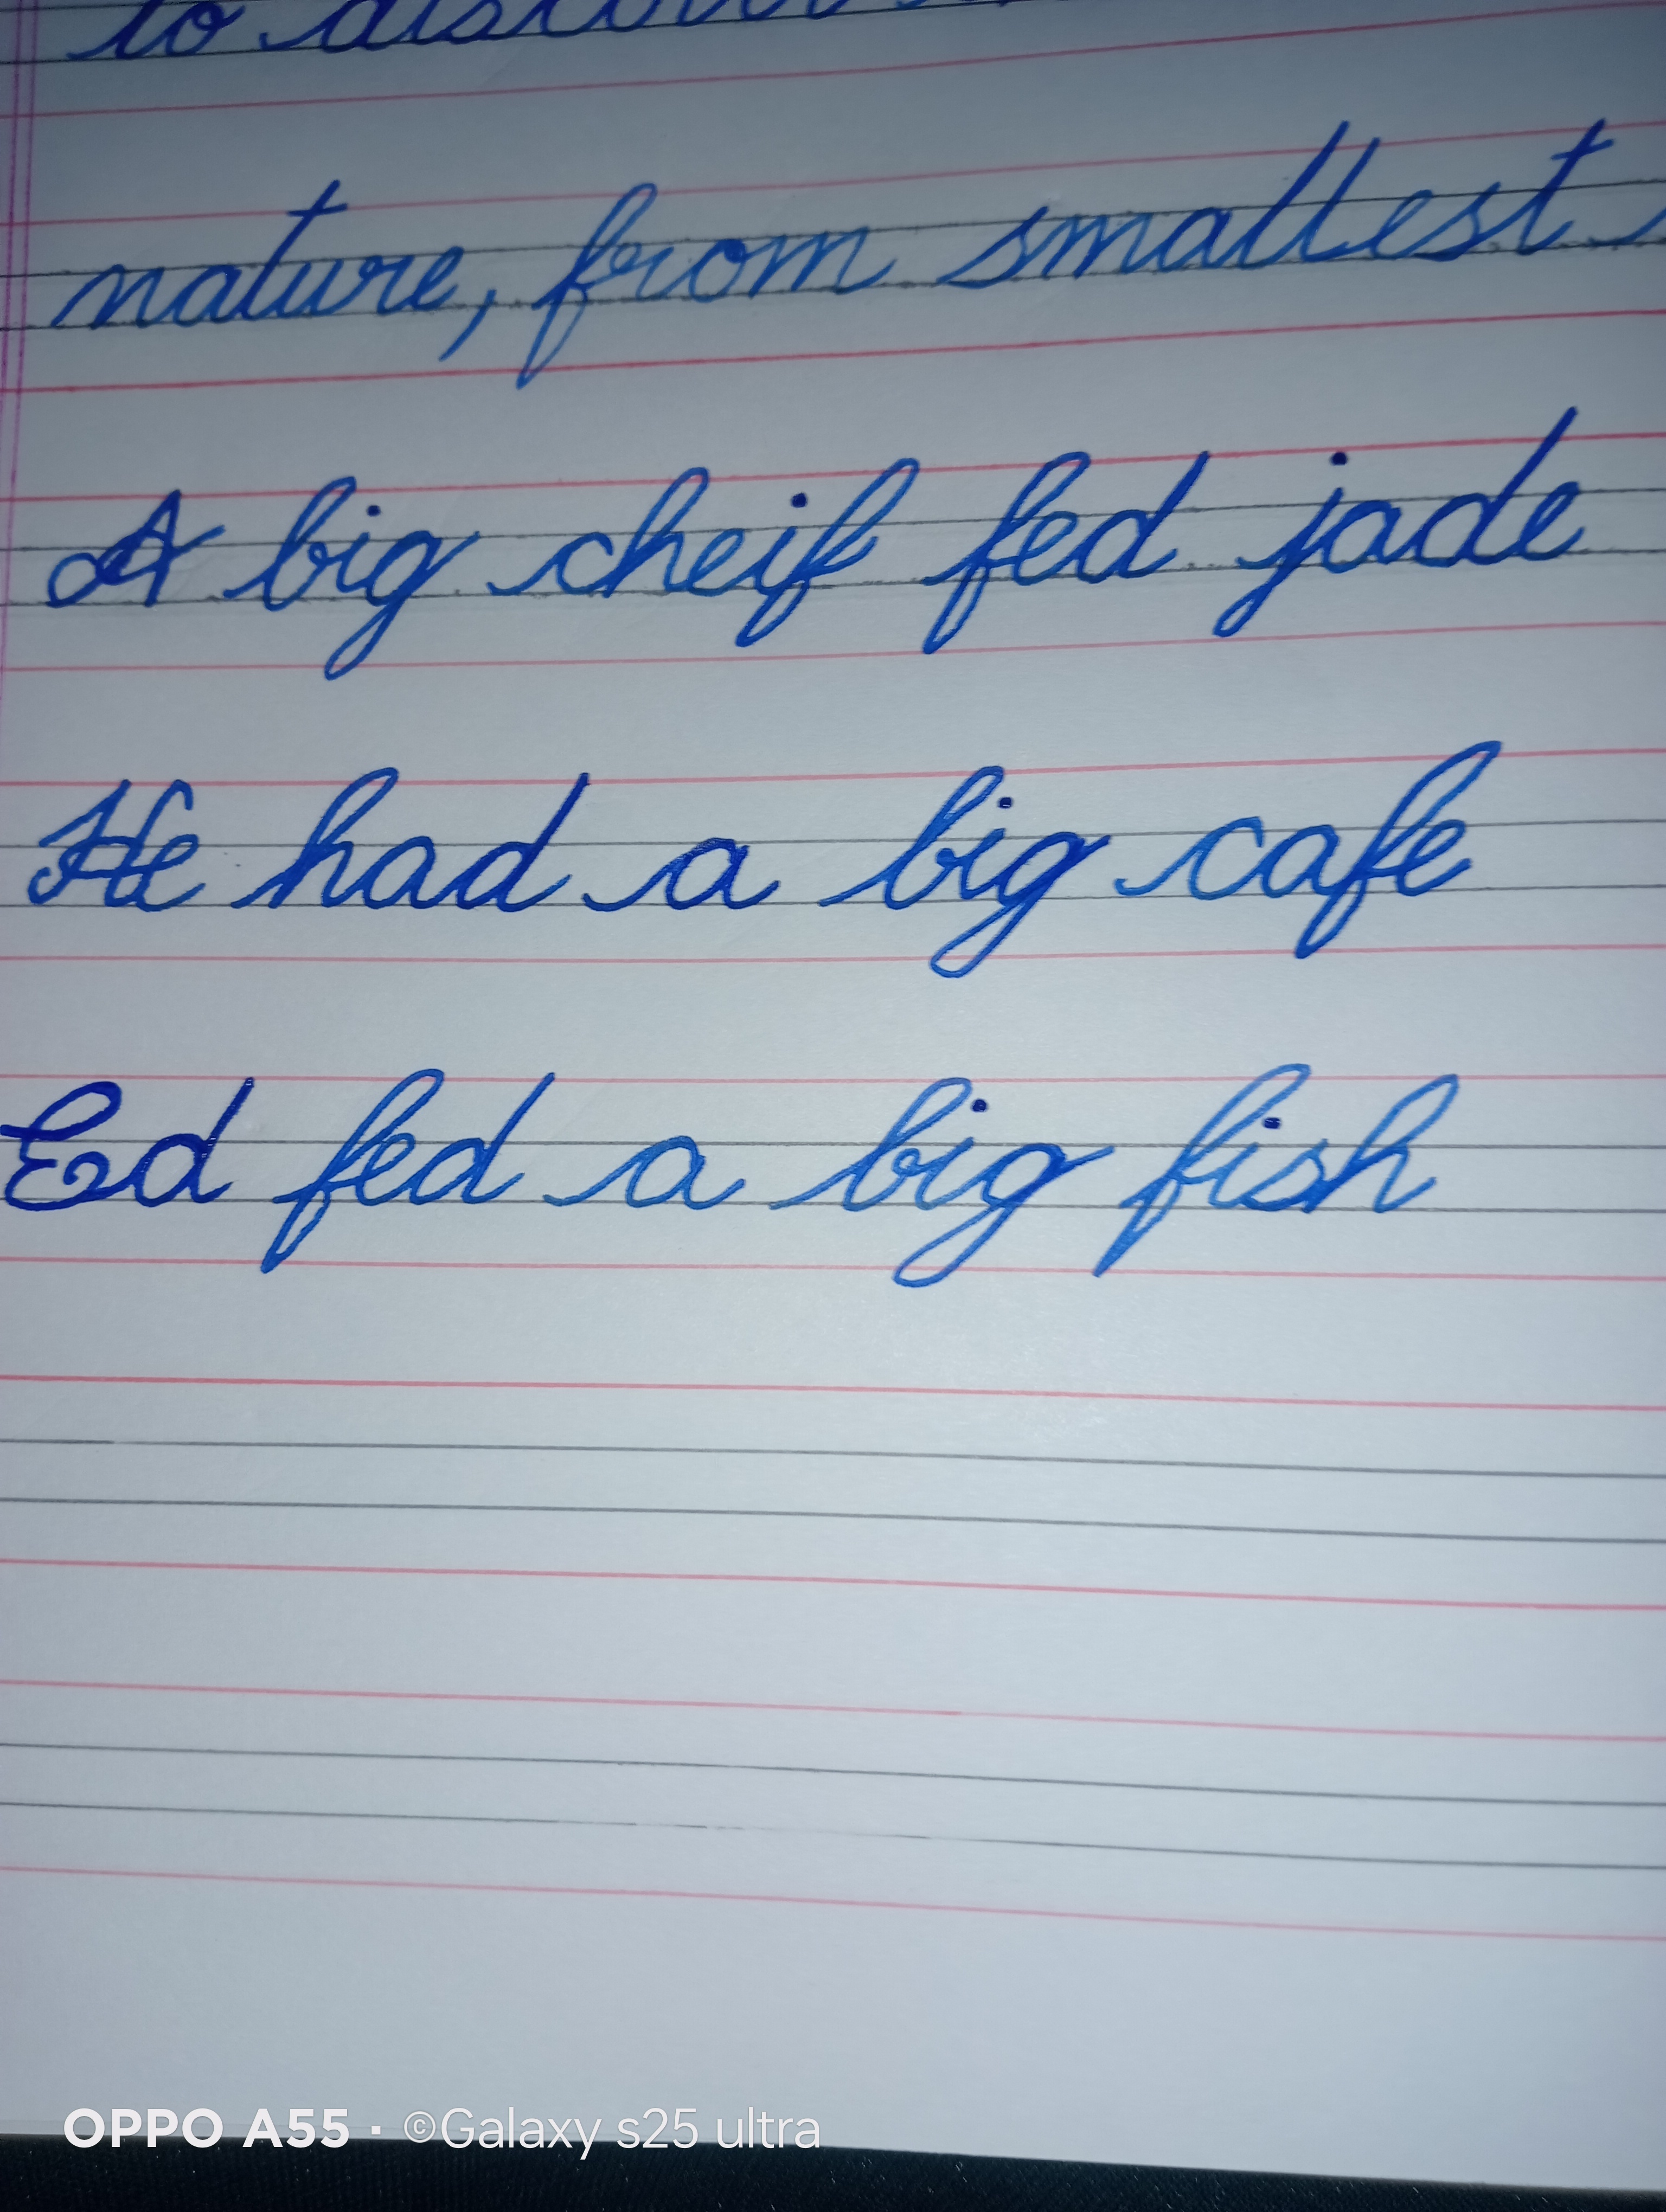 to
nature, from smallest
A big cheif fed jade
He had a big cafe
Ed fed a big fish
OPPO A55 · ©Galaxy s25 ultra